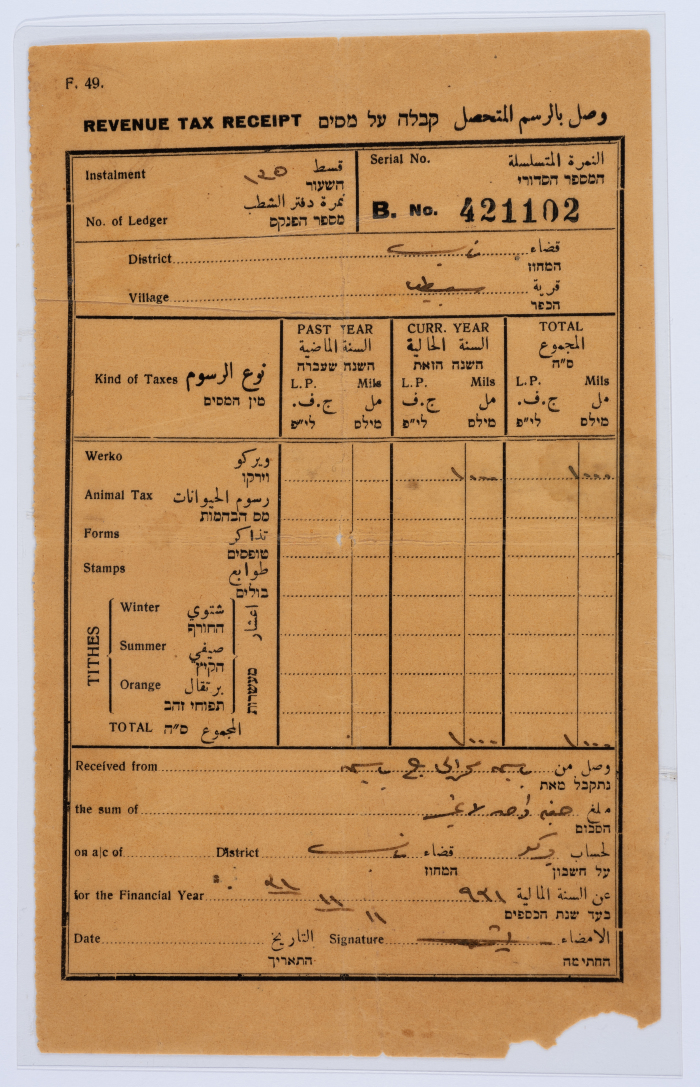 F. 49.
REVENUE TAX RECEIPT קבלה על מסים وصل بالرسم المتحصل
Instalment ١٢٥ قسط
השעור
نمرة دفتر الشطب
No. of Ledger מספר הפנקס
Serial No. النمرة المتسلسلة
המספר הסדורי
B. No. 421102
District قضاء
המחוז
Village قرية
הכפר
Kind of Taxes نوع الرسوم
מין המסים
PAST YEAR
السنة الماضية
השנה שעברה
L.P. Mils
ج.ف. مل
לי"פ מילס
CURR. YEAR
السنة الحالية
השנה הזאת
L.P. Mils
ج.ف. مل
לי"פ מילס
TOTAL
المجموع
ס"ה
L.P. Mils
ج.ف. مل
לי"פ מילס
Werko ويركو
וירקו
١٠٠٠ ١٠٠٠
Animal Tax رسوم الحيوانات
מס הבהמות
Forms تذاكر
טופסים
Stamps طوابع
בולים
TITHES اعشار מעשרות
Winter شتوي
החורף
Summer صيفي
הקיץ
Orange برتقال
תפוחי זהב
TOTAL ס"ה المجموع ١٠٠٠ ١٠٠٠
Received from وصل من
נתקבל מאת
the sum of مبلغ
הסכום
on a/c of District قضاء ويركو لحساب
המחוז על חשבון
for the Financial Year ٩٣١ عن السنة المالية
בעד שנת הכספים
Date التاريخ Signature الامضاء
התאריך החתימה